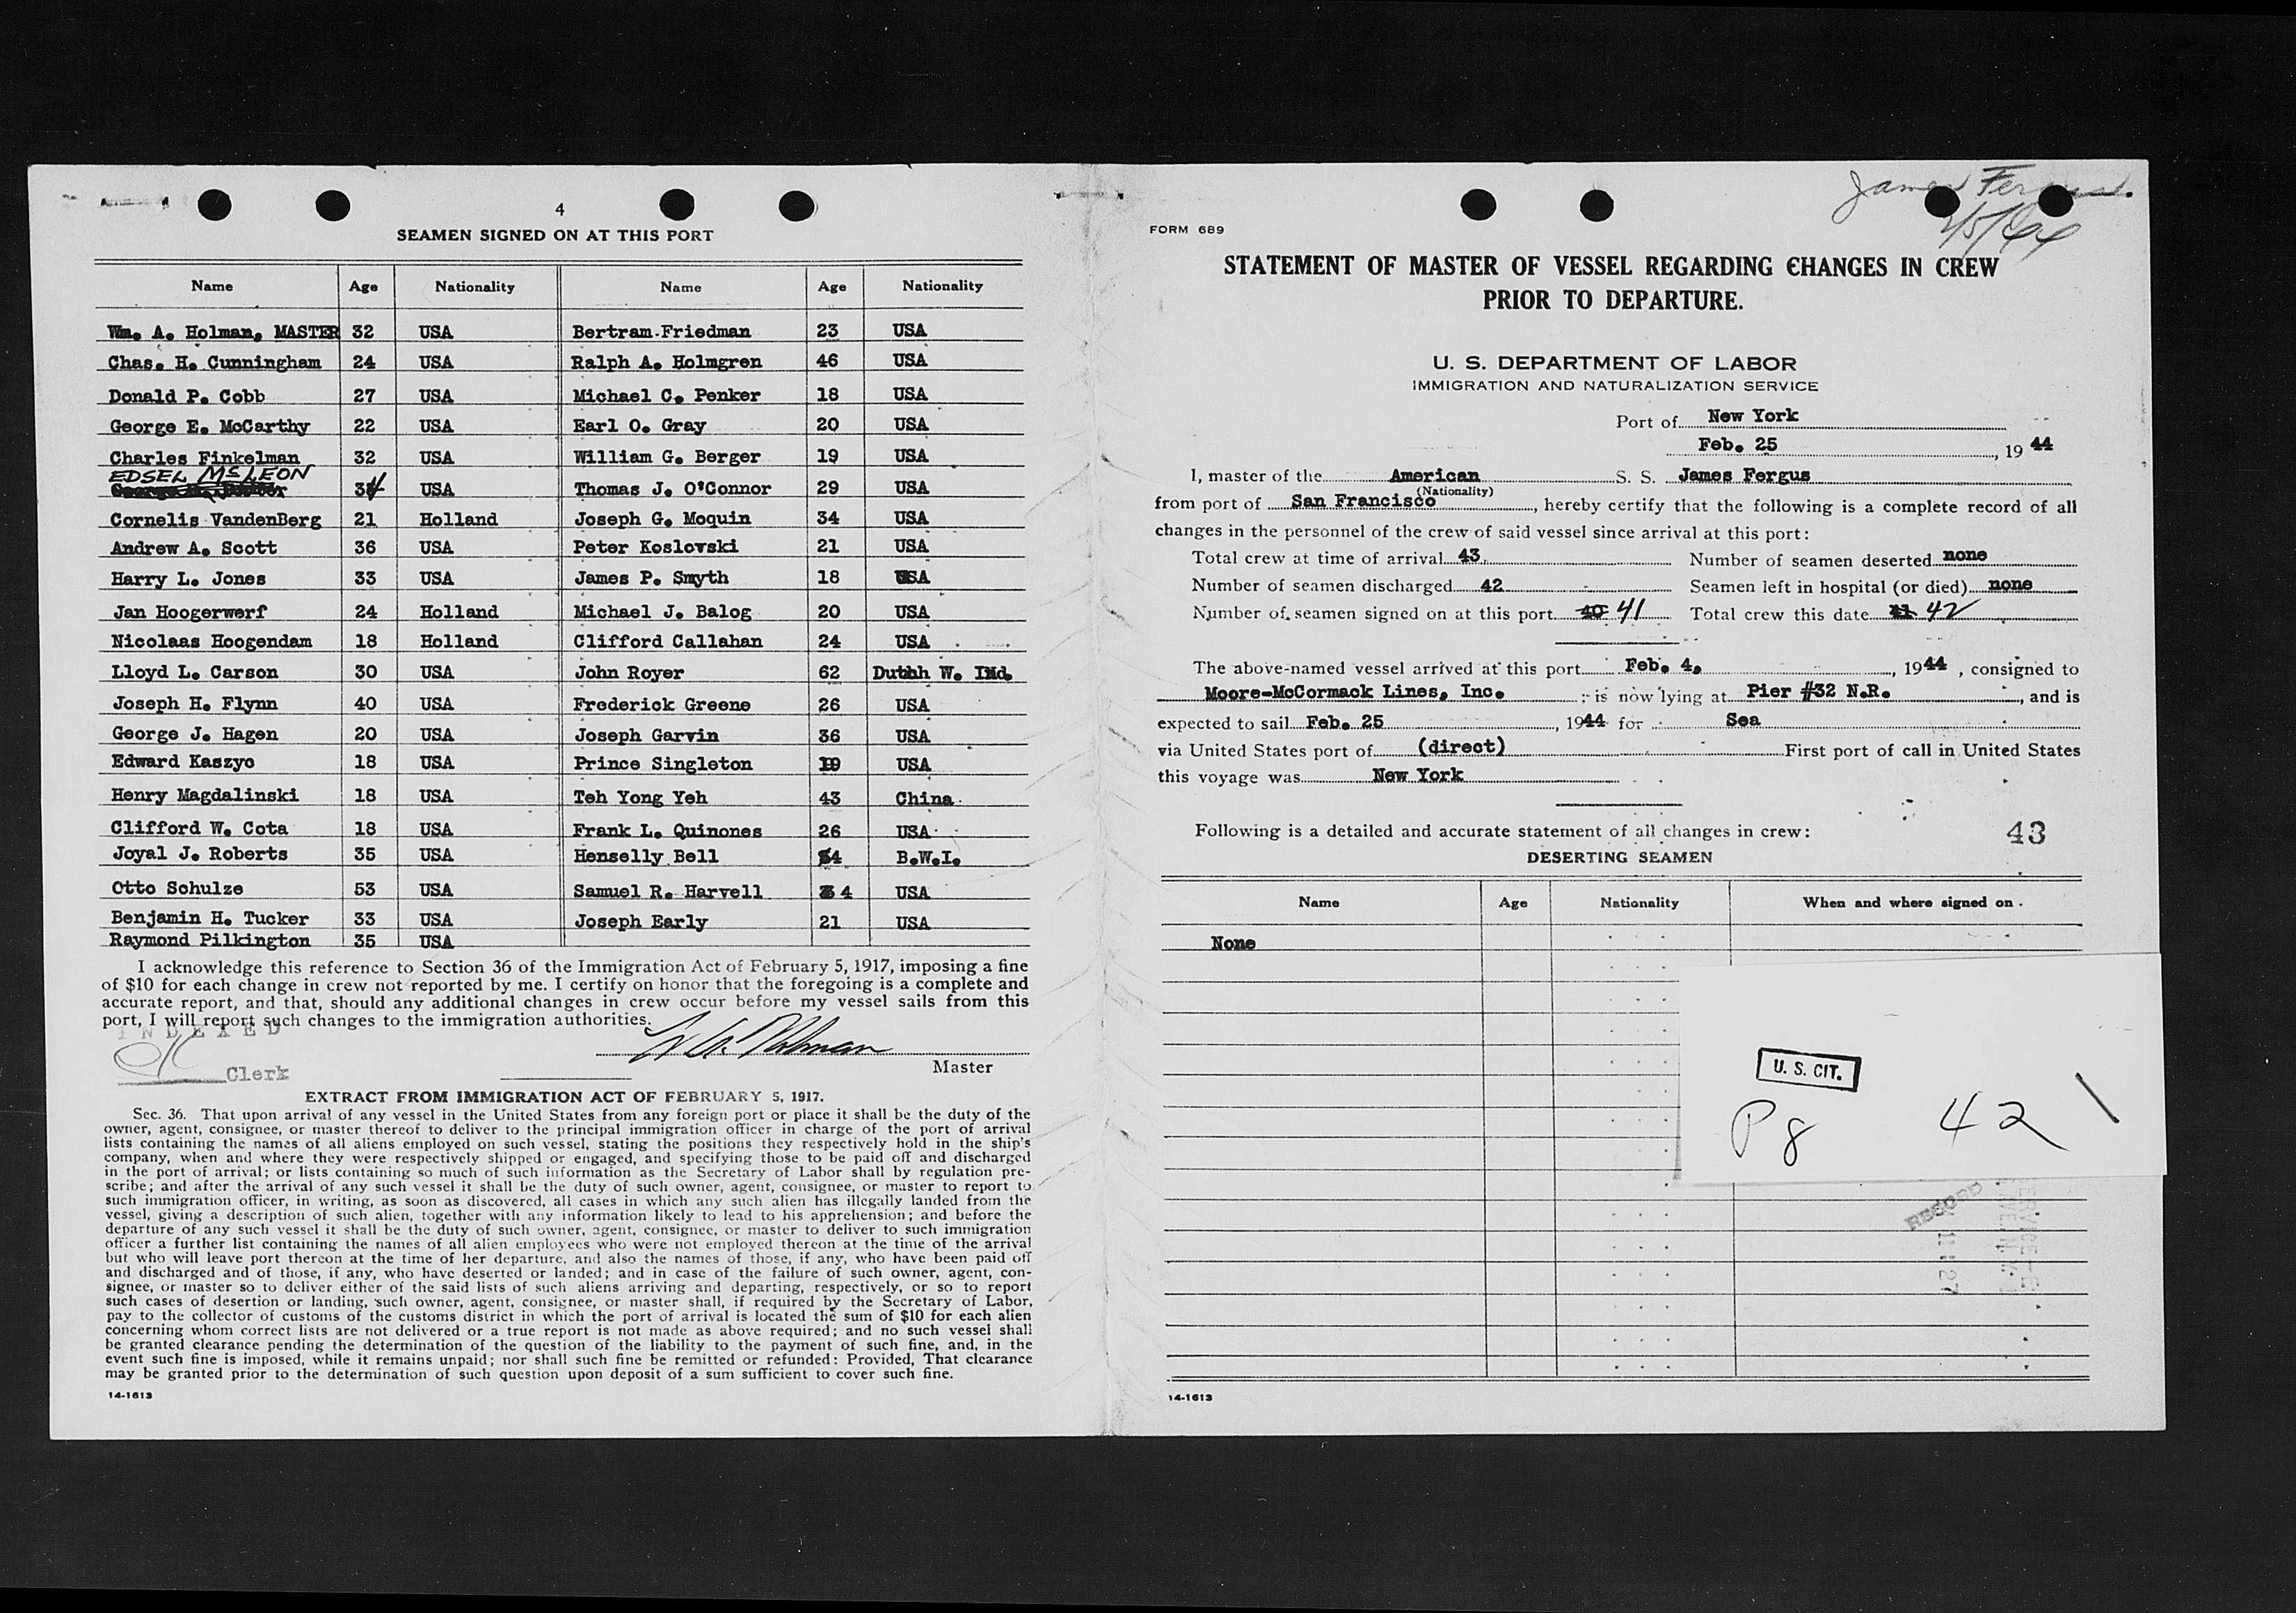 4
SEAMEN SIGNED ON AT THIS PORT
Name Age Nationality Name Age Nationality
Wm. A. Holman, MASTER 32 USA Bertram Friedman 23 USA
Chas. H. Cunningham 24 USA Ralph A. Holmgren 46 USA
Donald P. Cobb 27 USA Michael C. Penker 18 USA
George E. McCarthy 22 USA Earl O. Gray 20 USA
Charles Finkelman 32 USA William G. Berger 19 USA
EDSEL McLEON
34 USA Thomas J. O'Connor 29 USA
Cornelis VandenBerg 21 Holland Joseph G. Moquin 34 USA
Andrew A. Scott 36 USA Peter Koslovski 21 USA
Harry L. Jones 33 USA James P. Smyth 18 USA
Jan Hoogerwerf 24 Holland Michael J. Balog 20 USA
Nicolaas Hoogendam 18 Holland Clifford Callahan 24 USA
Lloyd L. Carson 30 USA John Royer 62 Dutbh W. INd.
Joseph H. Flynn 40 USA Frederick Greene 26 USA
George J. Hagen 20 USA Joseph Garvin 36 USA
Edward Kaszyc 18 USA Prince Singleton 19 USA
Henry Magdalinski 18 USA Teh Yong Yeh 43 China
Clifford W. Cota 18 USA Frank L. Quinones 26 USA
Joyal J. Roberts 35 USA Henselly Bell 54 B.W.I.
Otto Schulze 53 USA Samuel R. Harvell 34 USA
Benjamin H. Tucker 33 USA Joseph Early 21 USA
Raymond Pilkington 35 USA
I acknowledge this reference to Section 36 of the Immigration Act of February 5, 1917, imposing a fine
of $10 for each change in crew not reported by me. I certify on honor that the foregoing is a complete and
accurate report, and that, should any additional changes in crew occur before my vessel sails from this
port, I will report such changes to the immigration authorities.
INDEXED
W. A. Holman
Master
Clerk
EXTRACT FROM IMMIGRATION ACT OF FEBRUARY 5, 1917.
Sec. 36. That upon arrival of any vessel in the United States from any foreign port or place it shall be the duty of the
owner, agent, consignee, or master thereof to deliver to the principal immigration officer in charge of the port of arrival
lists containing the names of all aliens employed on such vessel, stating the positions they respectively hold in the ship's
company, when and where they were respectively shipped or engaged, and specifying those to be paid off and discharged
in the port of arrival; or lists containing so much of such information as the Secretary of Labor shall by regulation pre-
scribe; and after the arrival of any such vessel it shall be the duty of such owner, agent, consignee, or master to report to
such immigration officer, in writing, as soon as discovered, all cases in which any such alien has illegally landed from the
vessel, giving a description of such alien, together with any information likely to lead to his apprehension; and before the
departure of any such vessel it shall be the duty of such owner, agent, consignee, or master to deliver to such immigration
officer a further list containing the names of all alien employees who were not employed thereon at the time of the arrival
but who will leave port thereon at the time of her departure, and also the names of those, if any, who have been paid off
and discharged and of those, if any, who have deserted or landed; and in case of the failure of such owner, agent, con-
signee, or master so to deliver either of the said lists of such aliens arriving and departing, respectively, or so to report
such cases of desertion or landing, such owner, agent, consignee, or master shall, if required by the Secretary of Labor,
pay to the collector of customs of the customs district in which the port of arrival is located the sum of $10 for each alien
concerning whom correct lists are not delivered or a true report is not made as above required; and no such vessel shall
be granted clearance pending the determination of the question of the liability to the payment of such fine, and, in the
event such fine is imposed, while it remains unpaid; nor shall such fine be remitted or refunded: Provided, That clearance
may be granted prior to the determination of such question upon deposit of a sum sufficient to cover such fine.
14-1613
James Fergus.
2/5/44
FORM 689
STATEMENT OF MASTER OF VESSEL REGARDING CHANGES IN CREW
PRIOR TO DEPARTURE.
U. S. DEPARTMENT OF LABOR
IMMIGRATION AND NATURALIZATION SERVICE
Port of New York
Feb. 25, 1944
I, master of the American S. S. James Fergus
(Nationality)
from port of San Francisco, hereby certify that the following is a complete record of all
changes in the personnel of the crew of said vessel since arrival at this port:
Total crew at time of arrival 43 Number of seamen deserted none
Number of seamen discharged 42 Seamen left in hospital (or died) none
Number of seamen signed on at this port 40 41 Total crew this date 41 42
The above-named vessel arrived at this port Feb. 4, 1944, consigned to
Moore-McCormack Lines, Inc. ; is now lying at Pier #32 N.R., and is
expected to sail Feb. 25, 1944 for Sea
via United States port of (direct) First port of call in United States
this voyage was New York
Following is a detailed and accurate statement of all changes in crew: 43
DESERTING SEAMEN
Name Age Nationality When and where signed on
None
U. S. CIT.
Pg 42
RECORD
14-1613